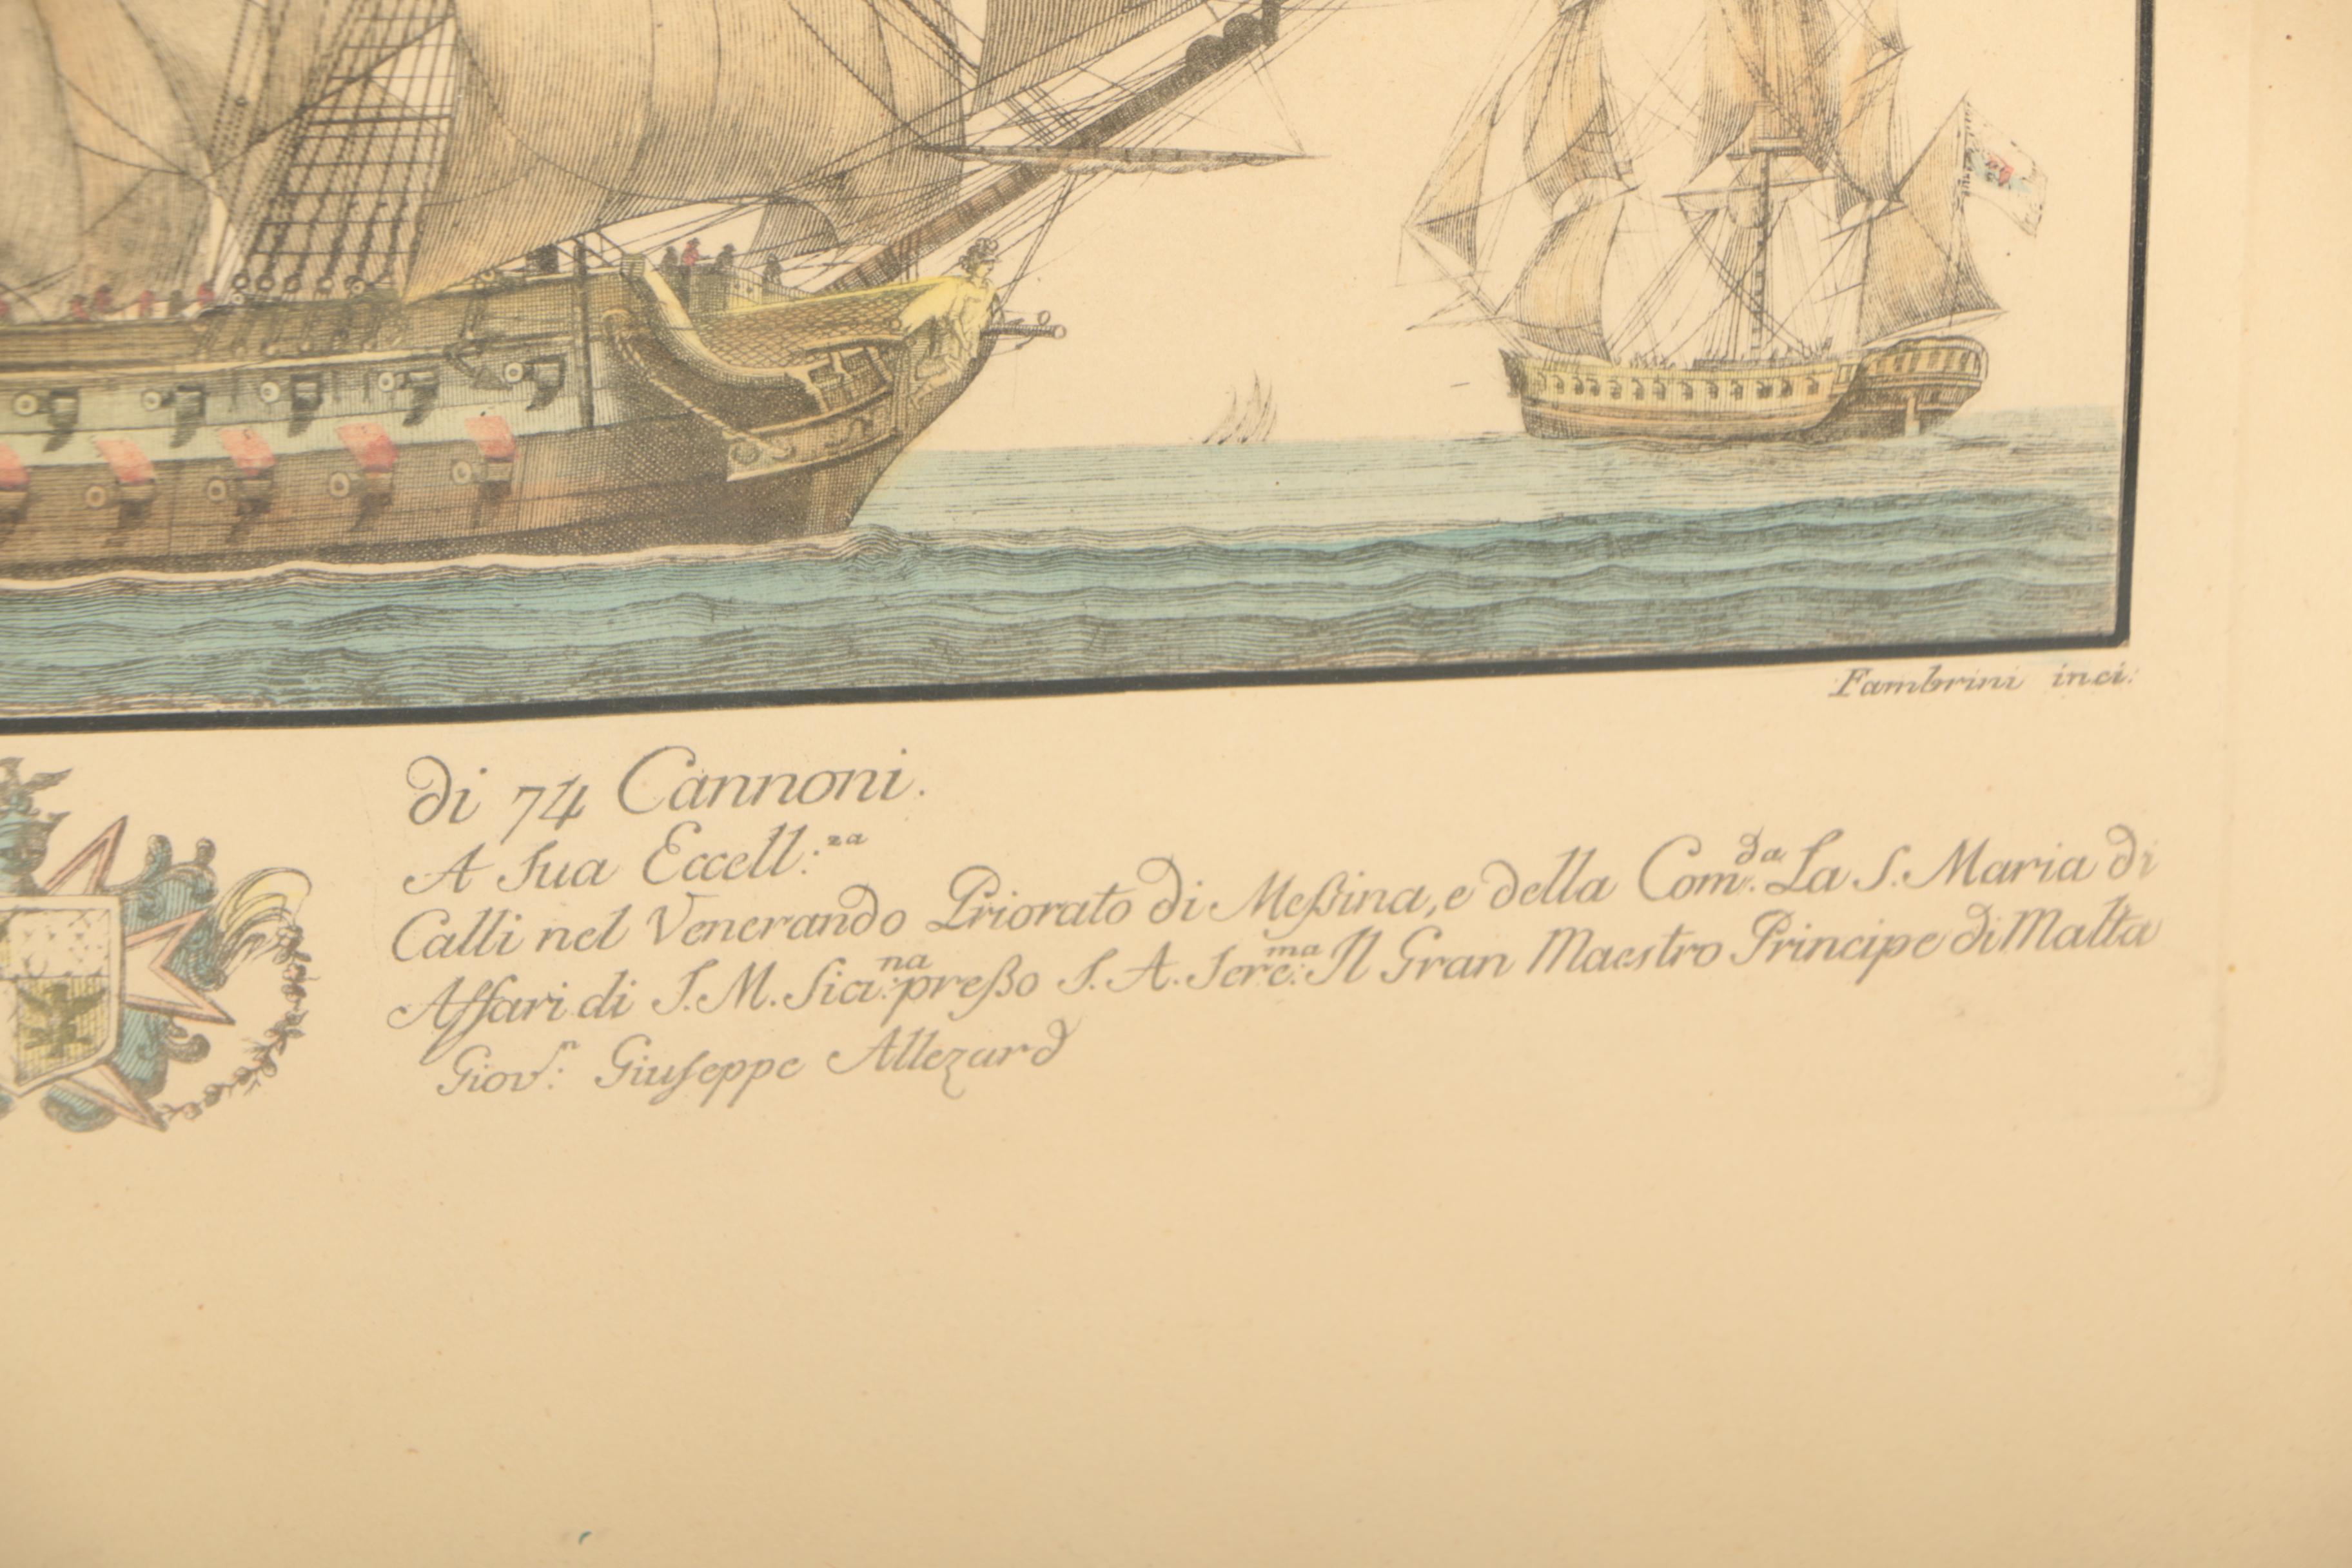 Fambrini inci:
di 74 Cannoni.
A Sua Eccell:za
Calli nel Venerando Priorato di Meßina, e della Com.da La S. Maria di
Affari di S. M. Sici:na preßo S. A. Sere:ma Il Gran Maestro Principe di Malta
Giov:n Giuseppe Allezard